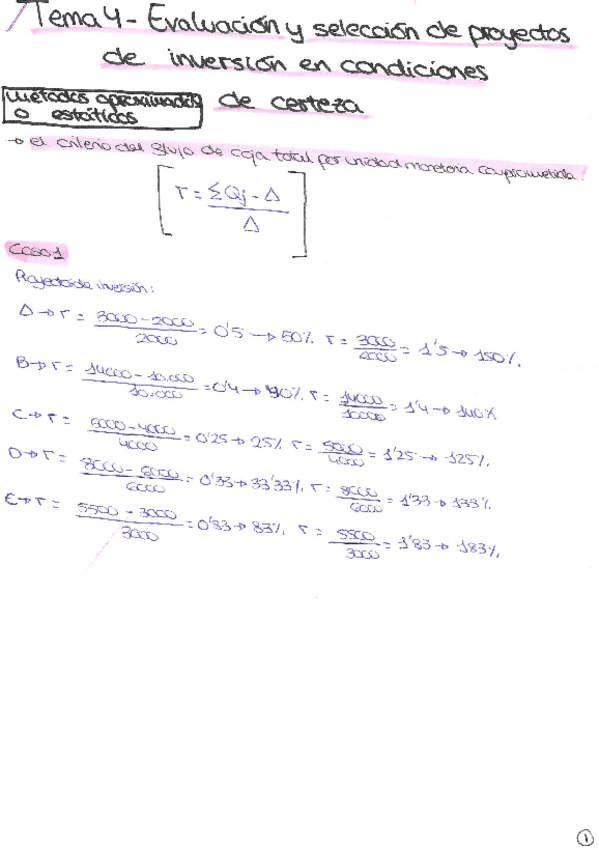 Tema 4 - Evaluación y selección de proyectos
de inversión en condiciones
de certeza
métodos aproximados
o estáticos
→ el criterio del flujo de caja total por unidad monetaria comprometida.
r = ΣQj - A / A
Caso 1
Proyecto de inversión:
A → r = 3000 - 2000 / 2000 = 0'5 → 50%. r = 3000 / 2000 = 1'5 → 150%.
B → r = 14000 - 10.000 / 10.000 = 0'4 → 40%. r = 14000 / 10000 = 1'4 → 140%
C → r = 5000 - 4000 / 4000 = 0'25 → 25% r = 5000 / 4000 = 1'25 → 125%.
D → r = 8000 - 6000 / 6000 = 0'33 → 33'33%. r = 8000 / 6000 = 1'33 → 133%.
E → r = 5500 - 3000 / 3000 = 0'83 → 83%. r = 5500 / 3000 = 1'83 → 183%.
1